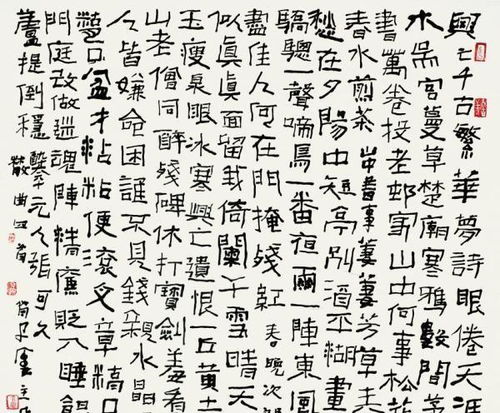 興亡千古繁華夢詩眼倦天涯
木吳宮蔓草楚廟寒鴉數間茅
書萬卷投老邨家山中何事松花
春水煎茶 山中書事 萋萋芳草春
愁在夕陽中短亭別酒平湖畫
驕驄一聲啼鳥一番夜雨一陣東風
盡佳人何在門掩殘紅 春晚次韻
似真真面留我倚闌干雪晴天
玉瘦泉眼冰寒興亡遺恨一丘黃土
山老僧同醉殘碑休打寶劍羞看
人皆嫌命困誰不見錢親水晶
盆才粘粘便滾文章糊
門庭改做迷魂陣清廉貶入睡餛
蘆提倒穩 元人張可久
散曲四首